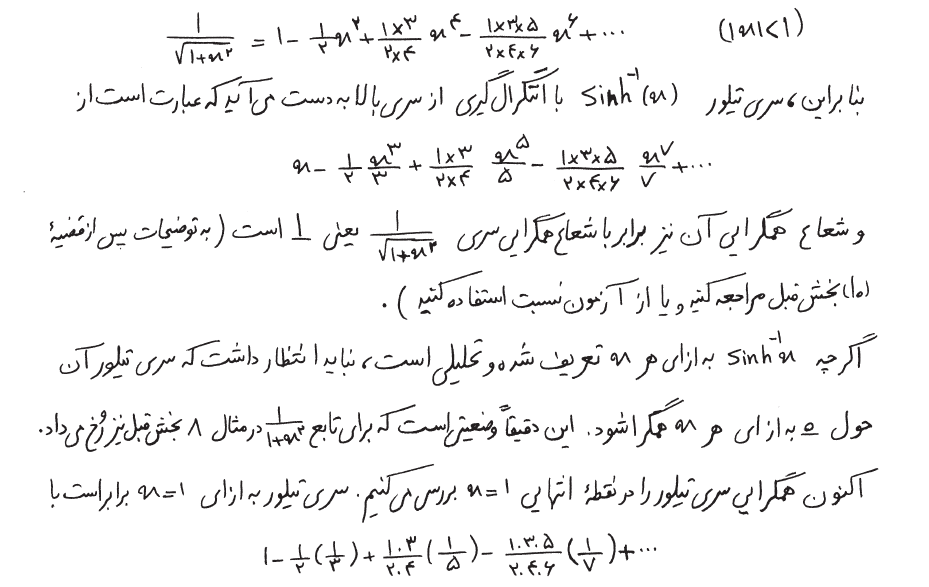 1/√(1+x²) = ۱ - ۱/۲ x² + (۱×۳)/(۲×۴) x⁴ - (۱×۳×۵)/(۲×۴×۶) x⁶ + ... (|x|<۱)
بنابراین، سری تیلور sinh⁻¹(x) با انتگرال گیری از سری بالا به دست می آید که عبارت است از
x - ۱/۲ x³/۳ + (۱×۳)/(۲×۴) x⁵/۵ - (۱×۳×۵)/(۲×۴×۶) x⁷/۷ + ...
و شعاع همگرایی آن نیز برابر با شعاع همگرایی سری 1/√(1+x²) یعنی ۱ است (به توضیحات پس از قضیهٔ
(۱۰) بخش قبل مراجعه کنید و یا از آزمون نسبت استفاده کنید).
اگر چه sinh⁻¹x به ازای هر x تعریف شده و تحلیلی است، نباید انتظار داشت که سری تیلور آن
حول ۰ به ازای هر x همگرا شود. این دقیقاً وضعیتی است که برای تابع 1/(1+x²) در مثال ۸ بخش قبل نیز رخ می داد.
اکنون همگرایی سری تیلور را در نقطهٔ انتهایی x=۱ بررسی می کنیم. سری تیلور به ازای x=۱ برابر است با
۱ - ۱/۲(۱/۳) + (۱.۳)/(۲.۴)(۱/۵) - (۱.۳.۵)/(۲.۴.۶)(۱/۷) + ...